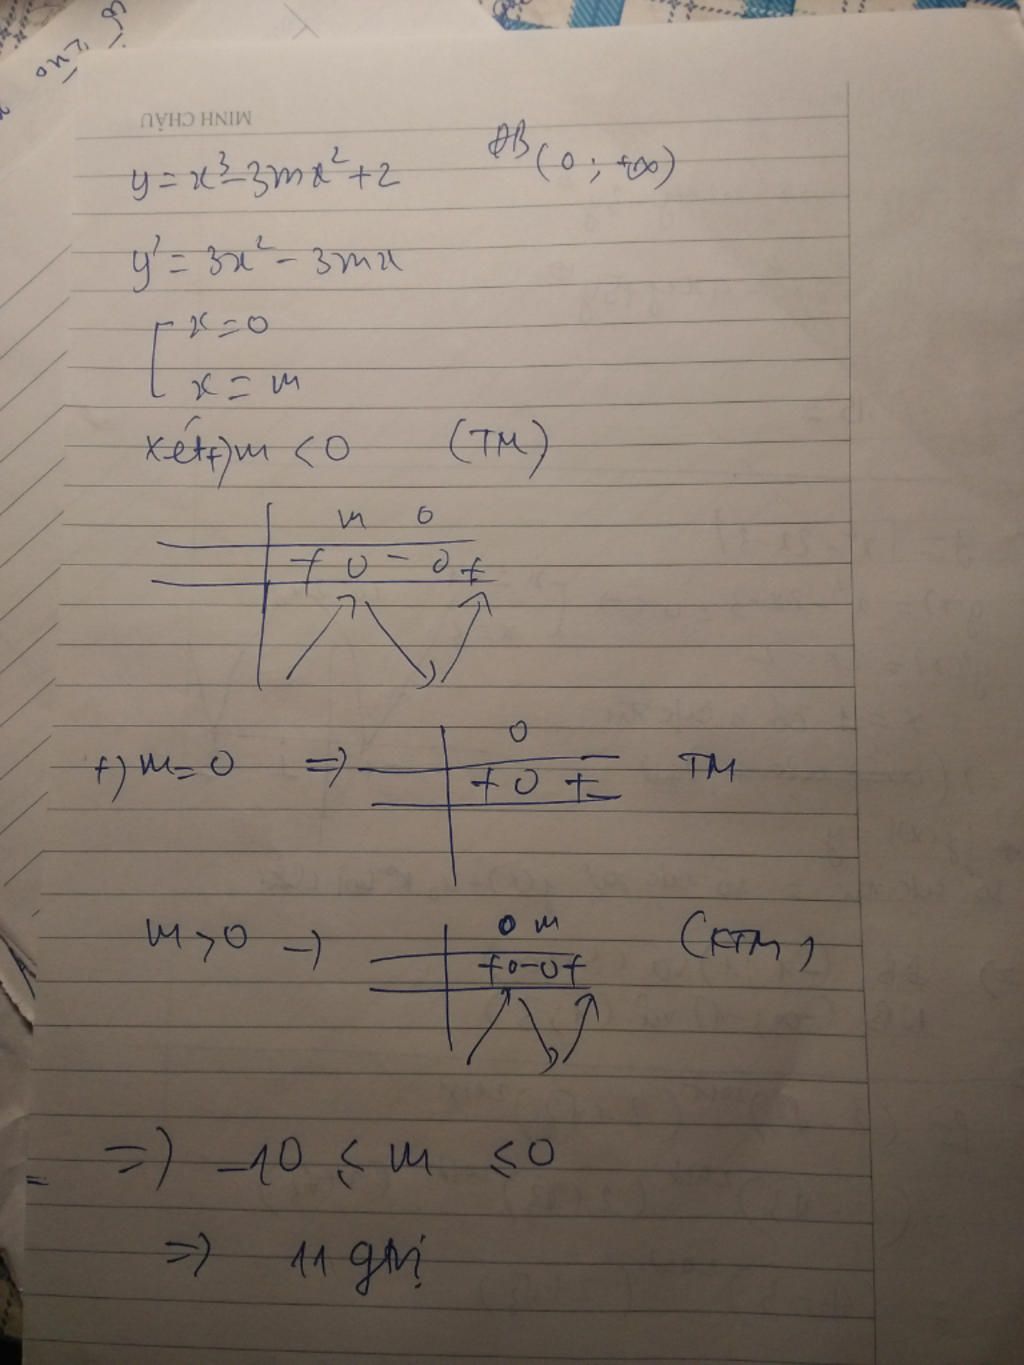 MINH CHÂU
y = x³ - 3mx² + 2 ĐB (0 ; +∞)
y' = 3x² - 3mx
[ x = 0
x = m
xét +) m < 0 (TM)
m 0
+ 0 - 0 +
+) m = 0 => 0
+ 0 + TM
m > 0 -) 0 m (KTM)
+ 0 - 0 +
=> -10 ≤ m ≤ 0
=> 11 gtrị